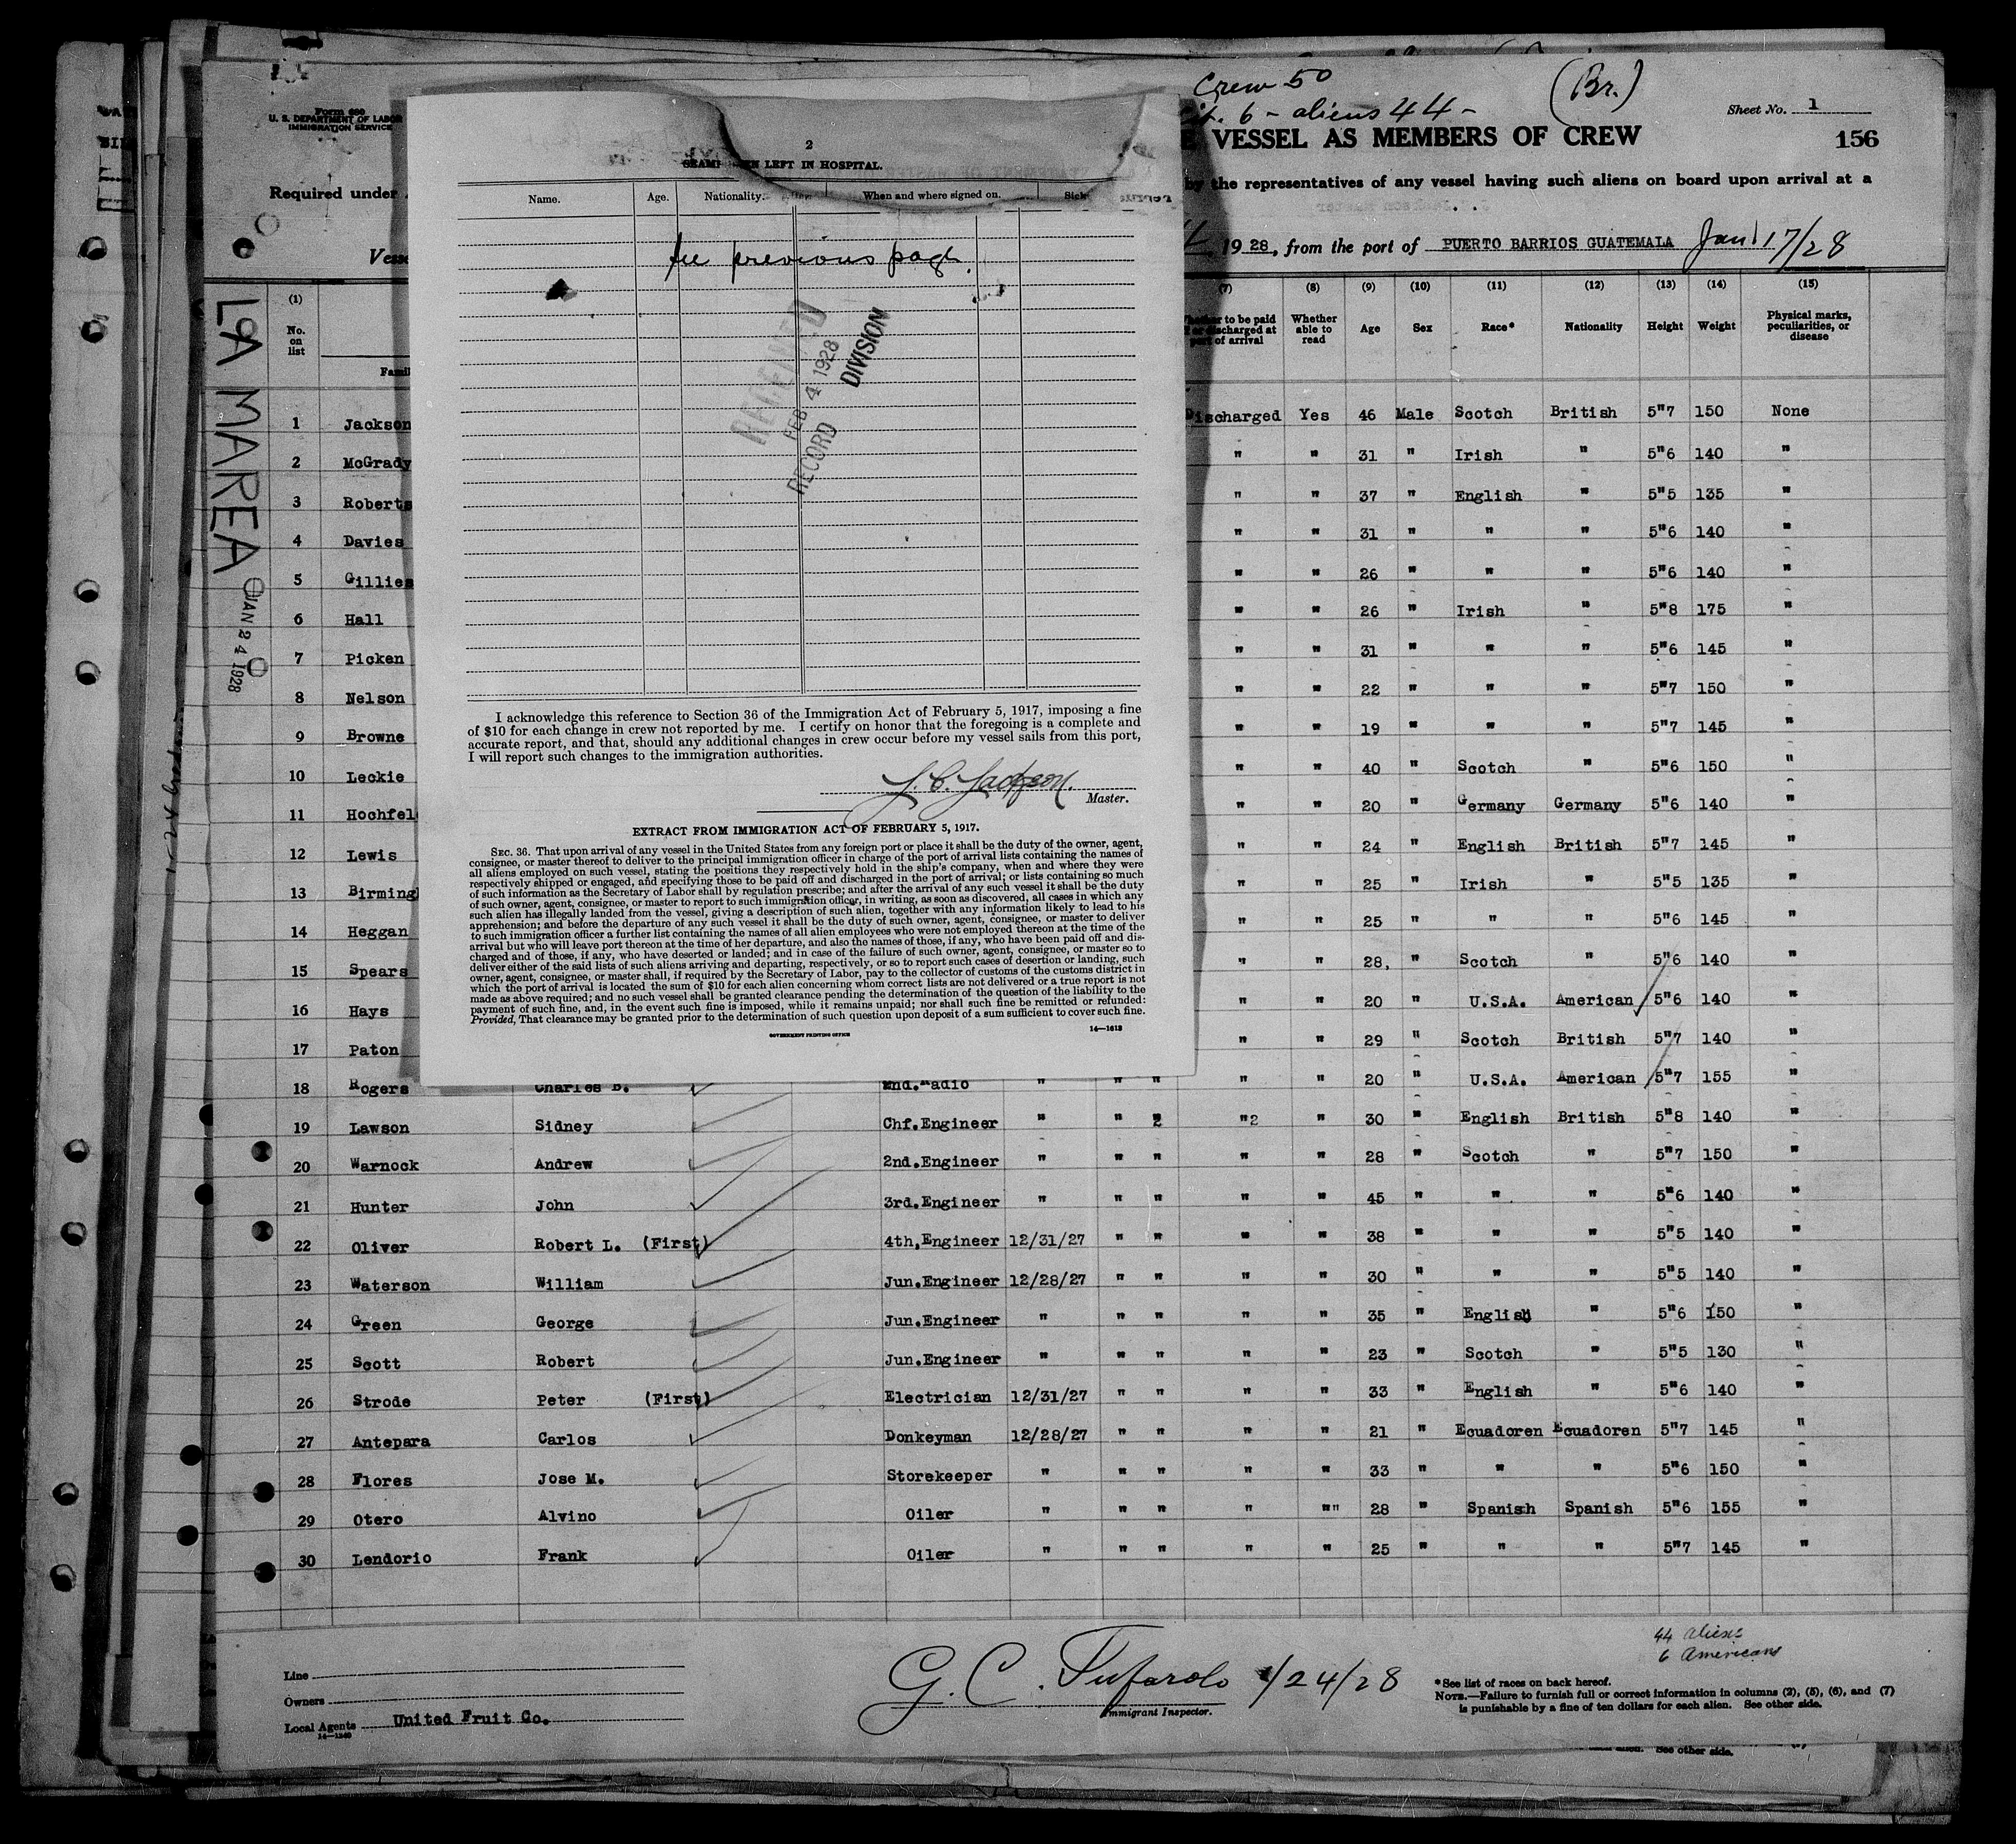 Crew 50
6 - aliens 44 -
(Br.)
Sheet No. 1
Form 680
U. S. DEPARTMENT OF LABOR
IMMIGRATION SERVICE
VESSEL AS MEMBERS OF CREW
156
Required under
by the representatives of any vessel having such aliens on board upon arrival at a
1928, from the port of PUERTO BARRIOS GUATEMALA Jan 17/28
LA MAREA
JAN 24 1928
2
LEFT IN HOSPITAL.
Name. Age. Nationality. When and where signed on. Sick
see previous page.
RECEIVED
FEB 4 1928
RECORD DIVISION
I acknowledge this reference to Section 36 of the Immigration Act of February 5, 1917, imposing a fine
of $10 for each change in crew not reported by me. I certify on honor that the foregoing is a complete and
accurate report, and that, should any additional changes in crew occur before my vessel sails from this port,
I will report such changes to the immigration authorities.
Jackson.
Master.
EXTRACT FROM IMMIGRATION ACT OF FEBRUARY 5, 1917.
SEC. 36. That upon arrival of any vessel in the United States from any foreign port or place it shall be the duty of the owner, agent,
consignee, or master thereof to deliver to the principal immigration officer in charge of the port of arrival lists containing the names of
all aliens employed on such vessel, stating the positions they respectively hold in the ship's company, when and where they were
respectively shipped or engaged, and specifying those to be paid off and discharged in the port of arrival; or lists containing so much
of such information as the Secretary of Labor shall by regulation prescribe; and after the arrival of any such vessel it shall be the duty
of such owner, agent, consignee, or master to report to such immigration officer, in writing, as soon as discovered, all cases in which any
such alien has illegally landed from the vessel, giving a description of such alien, together with any information likely to lead to his
apprehension; and before the departure of any such vessel it shall be the duty of such owner, agent, consignee, or master to deliver
to such immigration officer a further list containing the names of all alien employees who were not employed thereon at the time of the
arrival but who will leave port thereon at the time of her departure, and also the names of those, if any, who have been paid off and dis-
charged and of those, if any, who have deserted or landed; and in case of the failure of such owner, agent, consignee, or master so to
deliver either of the said lists of such aliens arriving and departing, respectively, or so to report such cases of desertion or landing, such
owner, agent, consignee, or master shall, if required by the Secretary of Labor, pay to the collector of customs of the customs district in
which the port of arrival is located the sum of $10 for each alien concerning whom correct lists are not delivered or a true report is not
made as above required; and no such vessel shall be granted clearance pending the determination of the question of the liability to the
payment of such fine, and, in the event such fine is imposed, while it remains unpaid; nor shall such fine be remitted or refunded:
Provided, That clearance may be granted prior to the determination of such question upon deposit of a sum sufficient to cover such fine.
GOVERNMENT PRINTING OFFICE 14—1613
(1) (7) (8) (9) (10) (11) (12) (13) (14) (15)
No. on list to be paid discharged at of arrival Whether able to read Age Sex Race* Nationality Height Weight Physical marks, peculiarities, or disease
1 Jackson Discharged Yes 46 Male Scotch British 5"7 150 None
2 McGrady " " 31 " Irish " 5"6 140 "
3 Roberts " " 37 " English " 5"5 135 "
4 Davies " " 31 " " " 5"6 140 "
5 Gillies " " 26 " " " 5"6 140 "
6 Hall " " 26 " Irish " 5"8 175 "
7 Picken " " 31 " " " 5"6 145 "
8 Nelson " " 22 " " " 5"7 150 "
9 Browne " " 19 " " " 5"7 145 "
10 Leckie " " 40 " Scotch " 5"6 150 "
11 Hochfel " " 20 " Germany Germany 5"6 140 "
12 Lewis " " 24 " English British 5"7 145 "
13 Birming " " 25 " Irish " 5"5 135 "
14 Heggan " " 25 " " " 5"6 145 "
15 Spears " " 28, " Scotch " 5"6 140 "
16 Hays " " 20 " U.S.A. American 5"6 140 "
17 Paton " " 29 " Scotch British 5"7 140 "
18 Rogers Charles B. 2nd.Radio " " " " " 20 " U.S.A. American 5"7 155 "
19 Lawson Sidney Chf.Engineer " " 2 "2 " 30 " English British 5"8 140 "
20 Warnock Andrew 2nd.Engineer " " " " " 28 " Scotch " 5"7 150 "
21 Hunter John 3rd.Engineer " " " " " 45 " " " 5"6 140 "
22 Oliver Robert L. (First) 4th,Engineer 12/31/27 " " " " 38 " " " 5"5 140 "
23 Waterson William Jun.Engineer 12/28/27 " " " " 30 " " " 5"5 140 "
24 Green George Jun.Engineer " " " " " 35 " English " 5"6 150 "
25 Scott Robert Jun.Engineer " " " " " 23 " Scotch " 5"5 130 "
26 Strode Peter (First) Electrician 12/31/27 " " " " 33 " English " 5"6 140 "
27 Antepara Carlos Donkeyman 12/28/27 " " " " 21 " Ecuadoren Ecuadoren 5"7 145 "
28 Flores Jose M. Storekeeper " " " " " 33 " " " 5"6 150 "
29 Otero Alvino Oiler " " " " "" 28 " Spanish Spanish 5"6 155 "
30 Lendorio Frank Oiler " " " " " 25 " " " 5"7 145 "
44 aliens
6 Americans
Line
Owners
Local Agents United Fruit Co.
14—1240
G. C. Tufarolo 1/24/28
Immigrant Inspector.
*See list of races on back hereof.
NOTE.—Failure to furnish full or correct information in columns (2), (5), (6), and (7)
is punishable by a fine of ten dollars for each alien. See other side.
See other side.